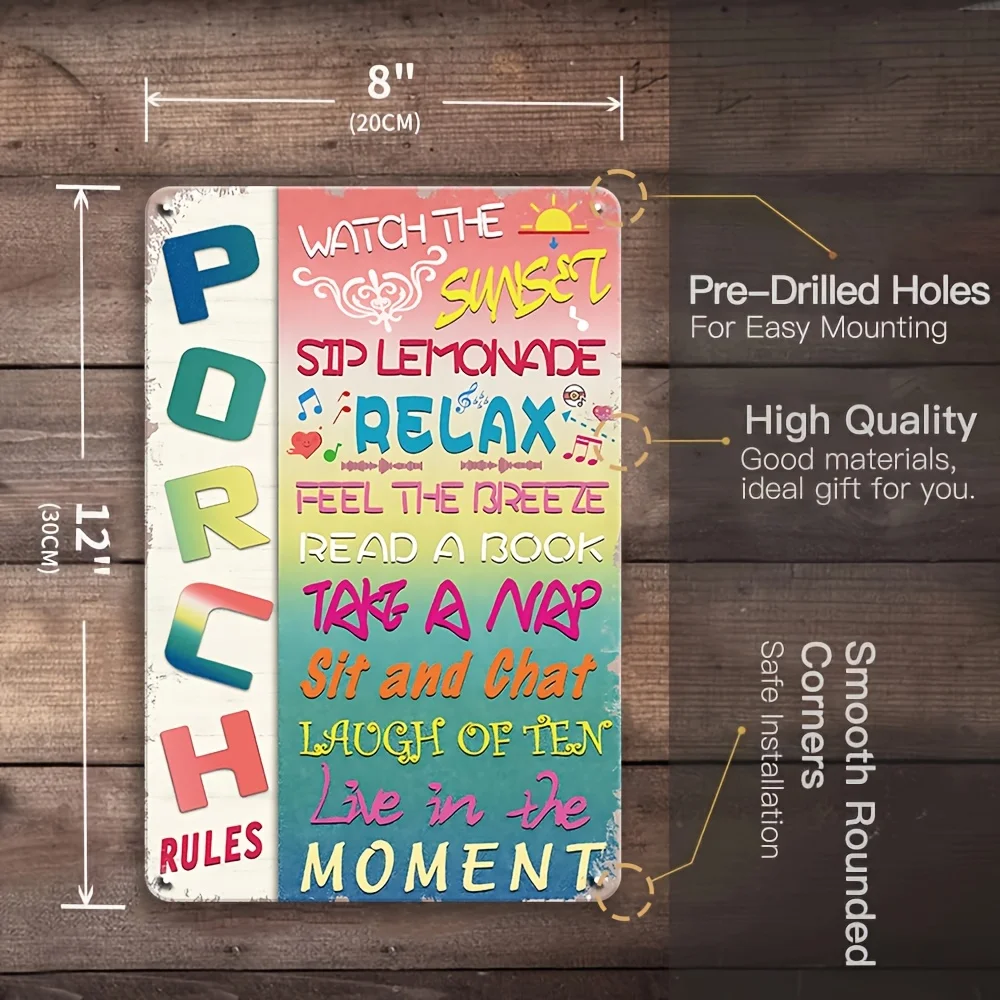 8"
(20CM)
12"
(30CM)
PORCH
RULES
WATCH THE
SUNSET
SIP LEMONADE
RELAX
FEEL THE BREEZE
READ A BOOK
TAKE A NAP
Sit and Chat
LAUGH OF TEN
Live in the
MOMENT
Pre-Drilled Holes
For Easy Mounting
High Quality
Good materials,
ideal gift for you.
Smooth Rounded
Corners
Safe Installation